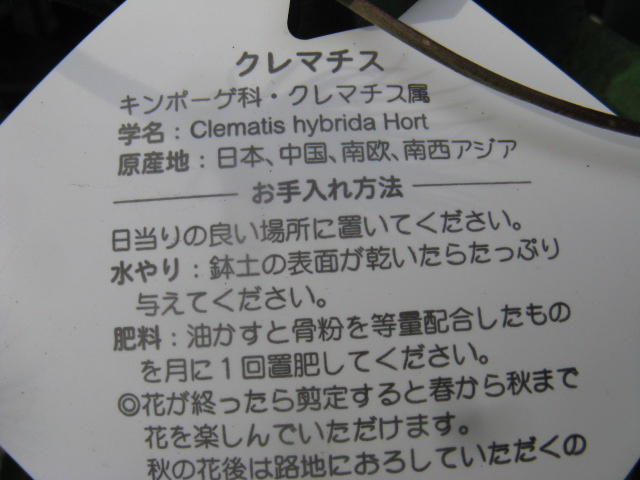 クレマチス
キンポーゲ科・クレマチス属
学名：Clematis hybrida Hort
原産地：日本、中国、南欧、南西アジア
お手入れ方法
日当りの良い場所に置いてください。
水やり：鉢土の表面が乾いたらたっぷり
与えてください。
肥料：油かすと骨粉を等量配合したもの
を月に1回置肥してください。
◎花が終ったら剪定すると春から秋まで
花を楽しんでいただけます。
秋の花後は路地におろしていただくの